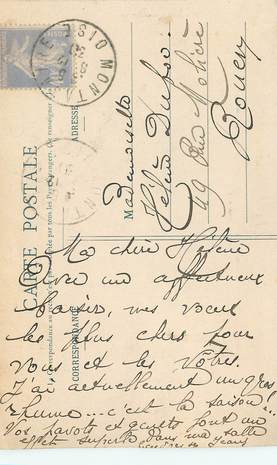 CARTE POSTALE
CORRESPONDANCE
ADRESSE
Mademoiselle
Hélène
49 Rue Molière
Rouen
Ma chère Hélène
Avec un affectueux
baiser, mes vœux
les plus chers pour
vous et les Vôtres.
J'ai actuellement un gros
rhume... c'est la saison!...
Vos pavots et genêts font un
effet superbe dans ma salle